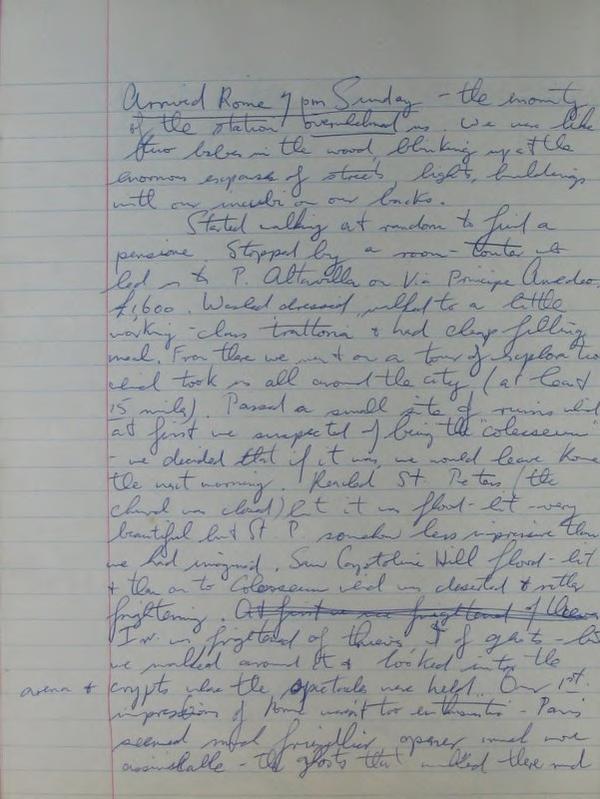 Arrived Rome 7 pm Sunday - the enormity
of the station overwhelmed us. We were like
two babes in the wood, blinking up at the
enormous expanse of streets, lights, buildings
with our on our backs.
Started walking at random to find a
pensione. Stopped by a room-touter who
led us to P. Altavilla on Via Principe Amedeo,
£1,600. Washed dressed, walked to a little
working-class trattoria & had cheap filling
meal. From there we went on a tour of exploration
which took us all around the city (at least
15 miles). Passed a small site of ruins which
at first we suspected of being the "colosseum"
- we decided that if it was, we would leave Rome
the next morning. Reached St. Peters (the
church was closed) but it was flood-lit - very
beautiful but St P. somehow less impressive than
we had imagined. Saw Capitoline Hill flood-lit
& then on to Colosseum which was deserted & rather
frightening. At first we were frightened of thieves
was frightened of thieves, I of ghosts - but
we walked around it & looked into the
arena & crypts where the spectacles were held. Our 1st
impression of Rome wasn't too enthusiastic - Paris
seemed much friendlier, opener, much more
assimilable - the ghosts that walked there had